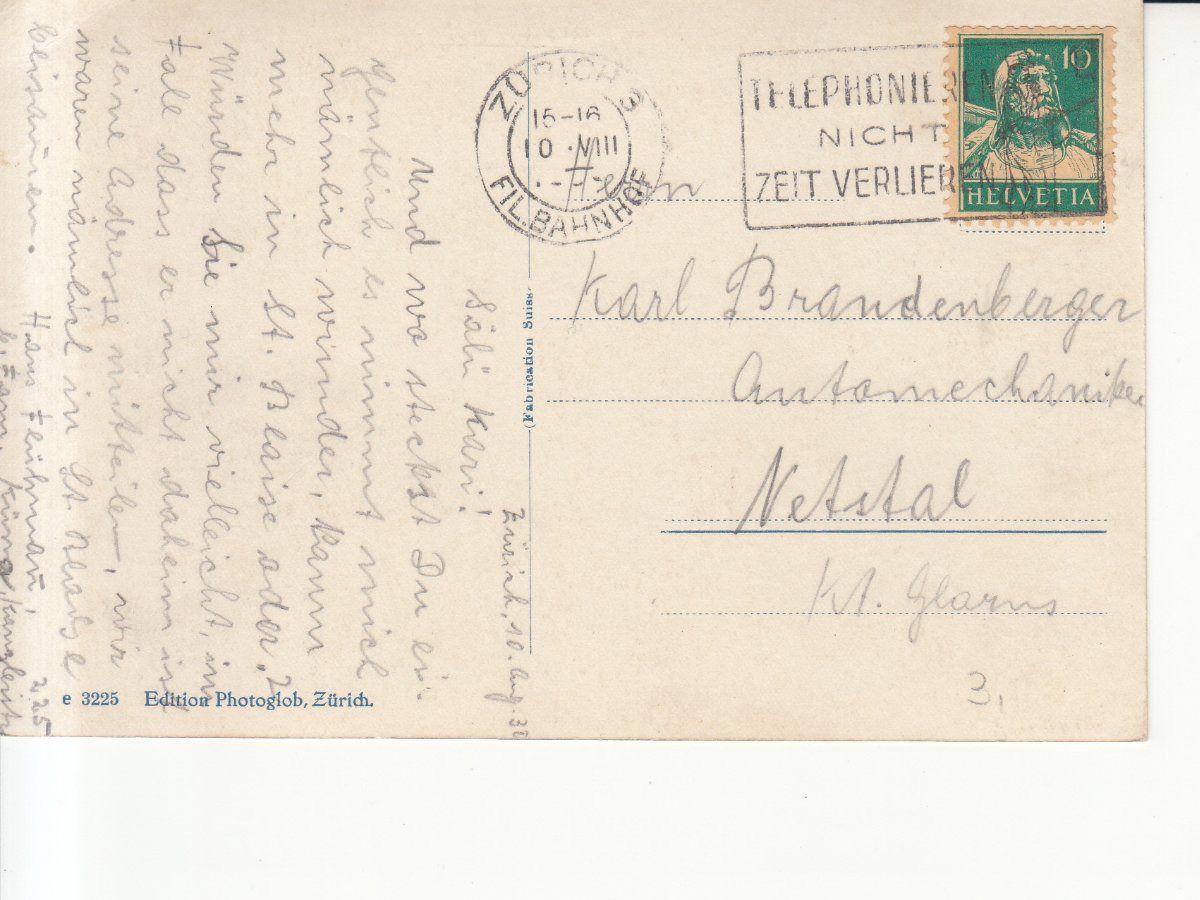 Zürich, 10. Aug. 3
Säli Kari!
Und wo steckst Du ei-
gentlich es nimmt mich
nämlich wunder, kann
mehr in St. Blaise oder,?
Würden Sie mir vielleicht, im
Fale dass er nicht daheim ist
seine Adresse mitteilen, wir
waren nämlich in St. Blaise
beisamen.
Hans
b. Fam.
225
ZÜRICH 3
15-16
10. VIII
FIL. BAHNHOF
TELEPHONIEREN
NICHT
ZEIT VERLIEREN
10
HELVETIA
Karl Brandenberger
Automechaniker
Netstal
Kt. Glarus
3.
(Fabrication Suisse
e 3225 Edition Photoglob, Zürich.